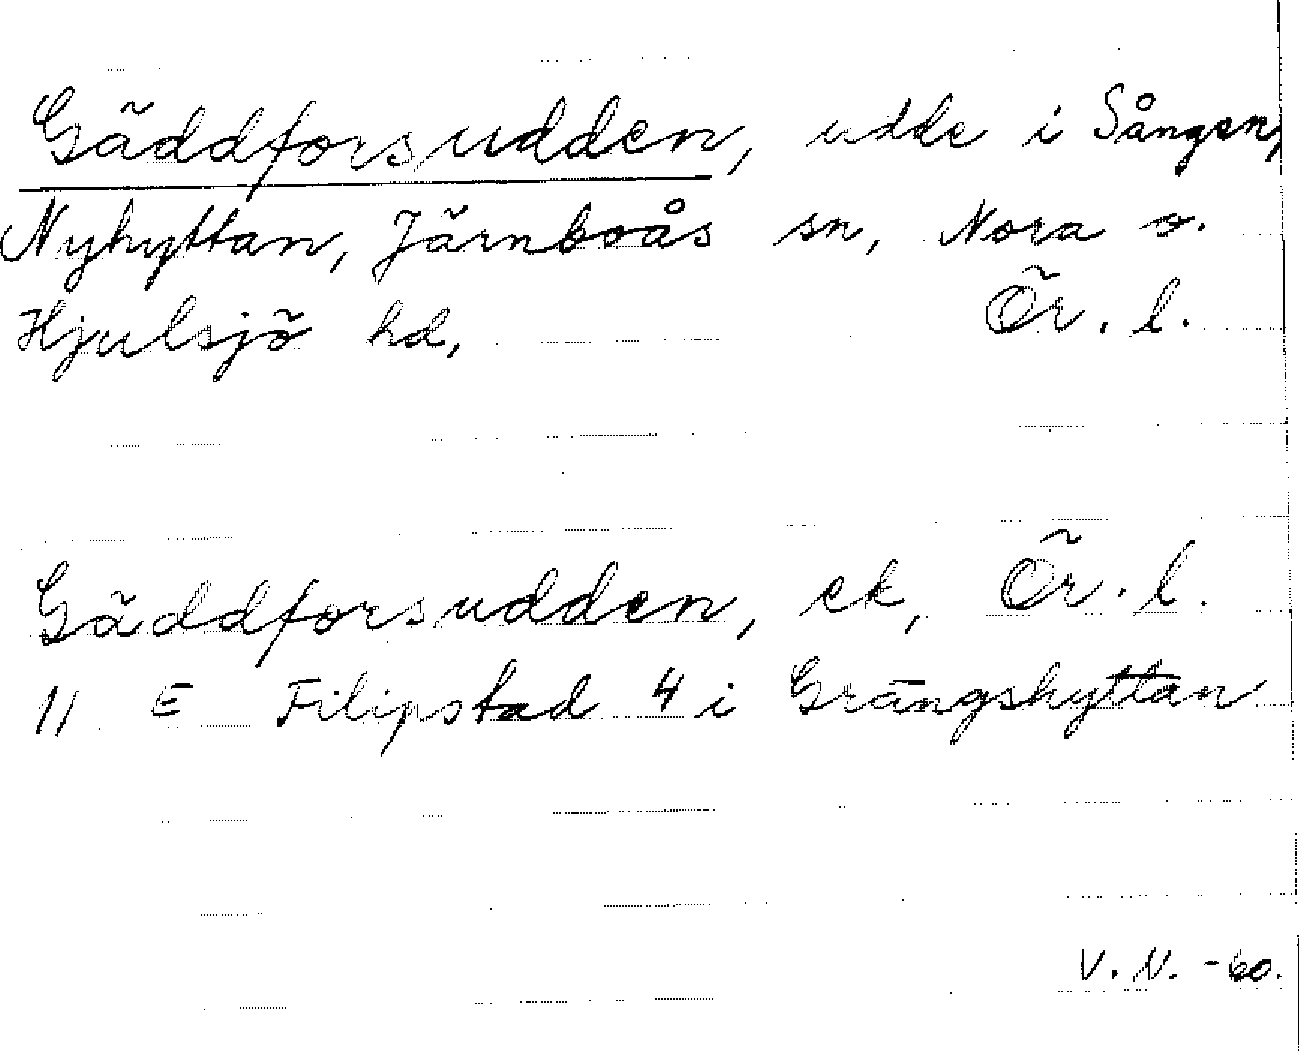 Gäddforsudden, udde i Sången,
Nyhyttan, Järnboås sn, Nora o.
Hjulsjö hd, Ör. l.
Gäddforsudden, ek, Ör. l.
11 E Filipstad 4 i Grängshyttan
V. N. -60.